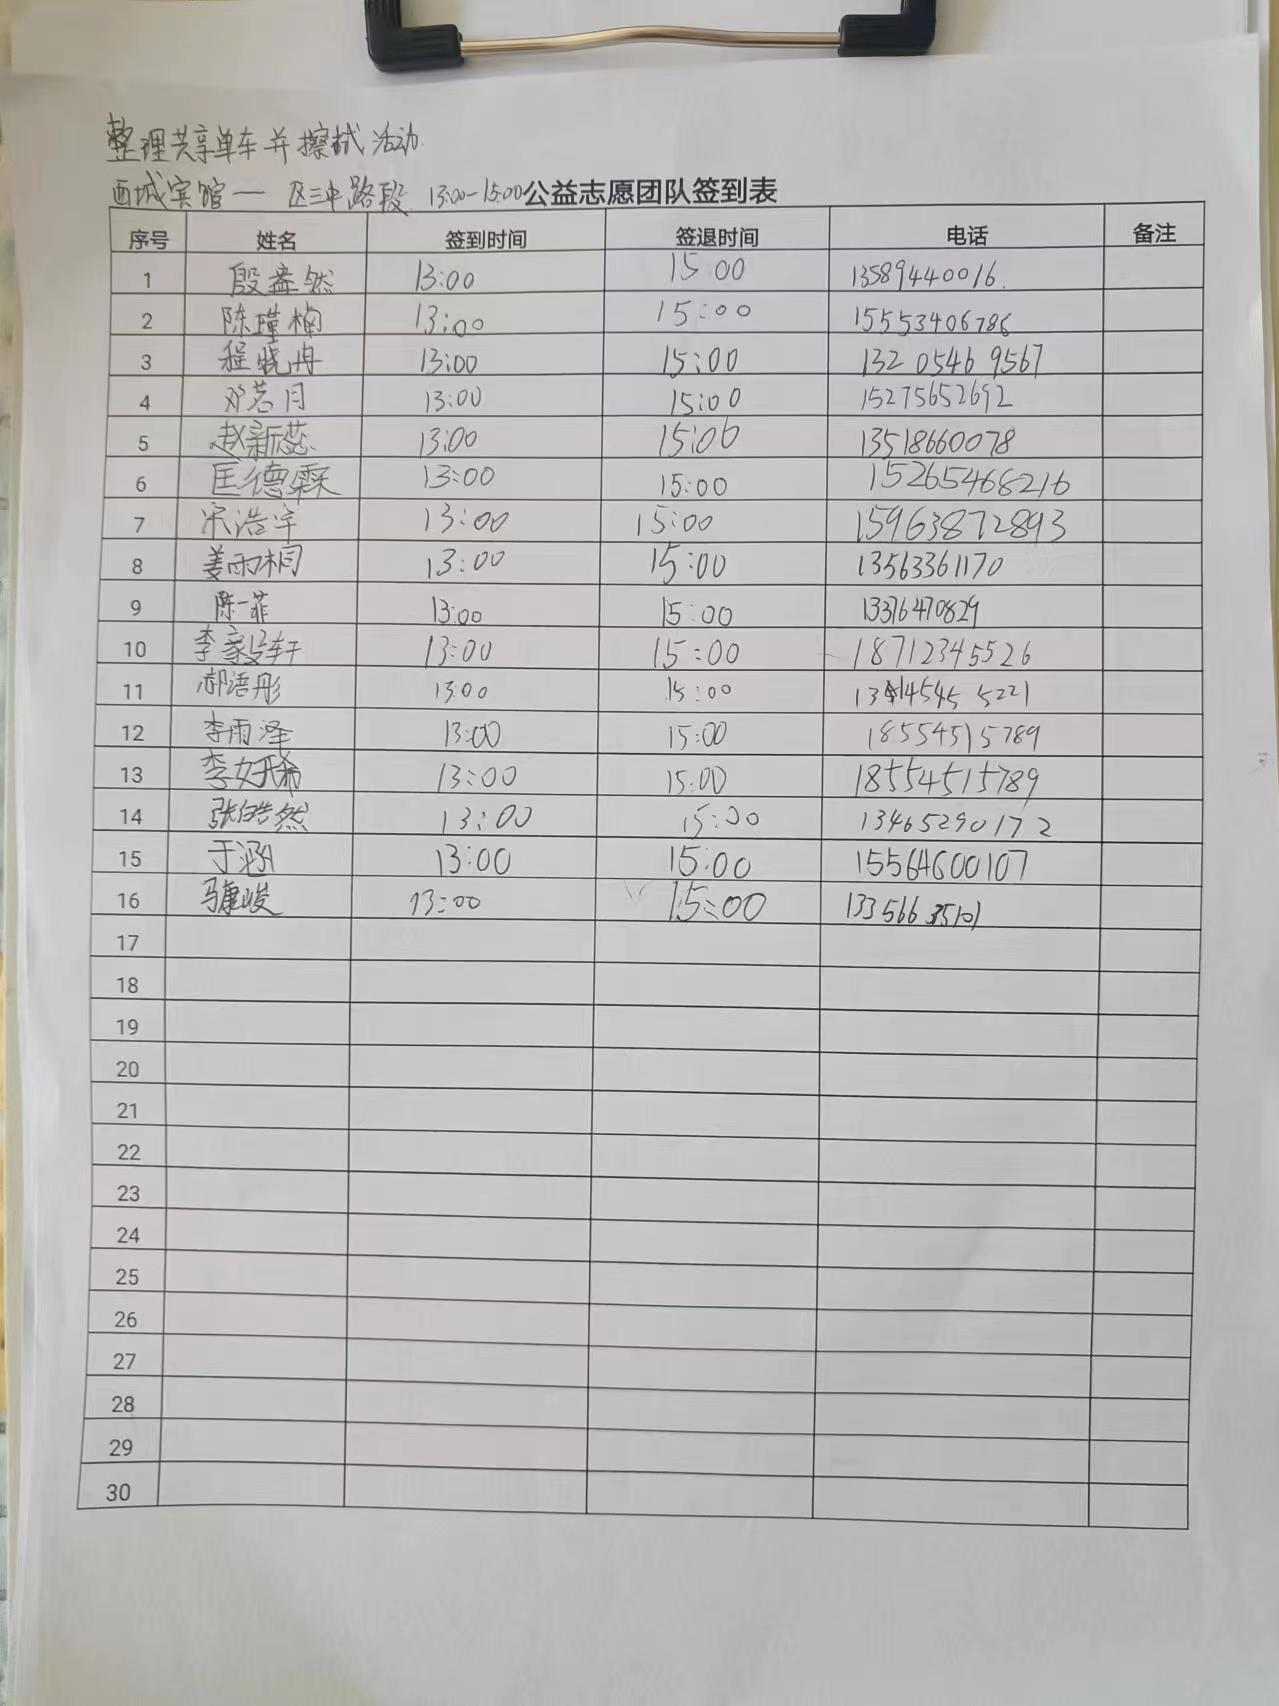 整理共享单车并擦拭活动
西城宾馆一 区三中路段 13:00-15:00公益志愿团队签到表
序号 姓名 签到时间 签退时间 电话 备注
1 殷睿然 13:00 15:00 13589440016
2 陈瑾楠 13:00 15:00 15553406786
3 程晓冉 13:00 15:00 132 0546 9567
4 邓若月 13:00 15:00 15275652692
5 赵新蕊 13:00 15:00 13518660078
6 匡德霖 13:00 15:00 15265468216
7 宋浩宇 13:00 15:00 15963872893
8 姜雨桐 13:00 15:00 13563361170
9 陈一菲 13:00 15:00 13376470829
10 李家轩 13:00 15:00 18712345526
11 郝语彤 13:00 15:00 5221
12 李雨泽 13:00 15:00 18554515789
13 李好 13:00 15:00 18554515789
14 张皓然 13:00 15:00 13465290172
15 于涵 13:00 15:00 15564600107
16 马康峻 13:00 15:00 133566
17
18
19
20
21
22
23
24
25
26
27
28
29
30